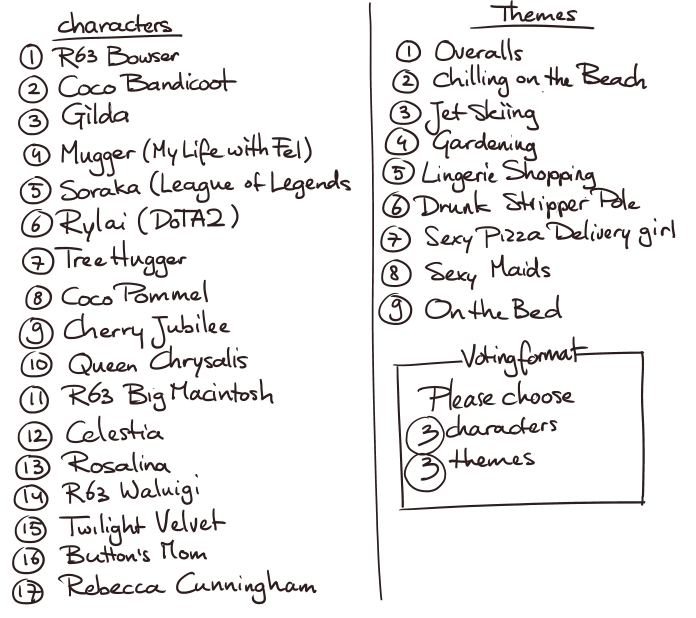 characters
1 R63 Bowser
2 Coco Bandicoot
3 Gilda
4 Mugger (My Life with Fel)
5 Soraka (League of Legends
6 Rylai (DoTA2)
7 Tree Hugger
8 Coco Pommel
9 Cherry Jubilee
10 Queen Chrysalis
11 R63 Big Macintosh
12 Celestia
13 Rosalina
14 R63 Waluigi
15 Twilight Velvet
16 Button's Mom
17 Rebecca Cunningham
Themes
1 Overalls
2 Chilling on the Beach
3 Jet Skiing
4 Gardening
5 Lingerie Shopping
6 Drunk Stripper Pole
7 Sexy Pizza Delivery girl
8 Sexy Maids
9 On the Bed
Voting format
Please choose
3 characters
3 themes